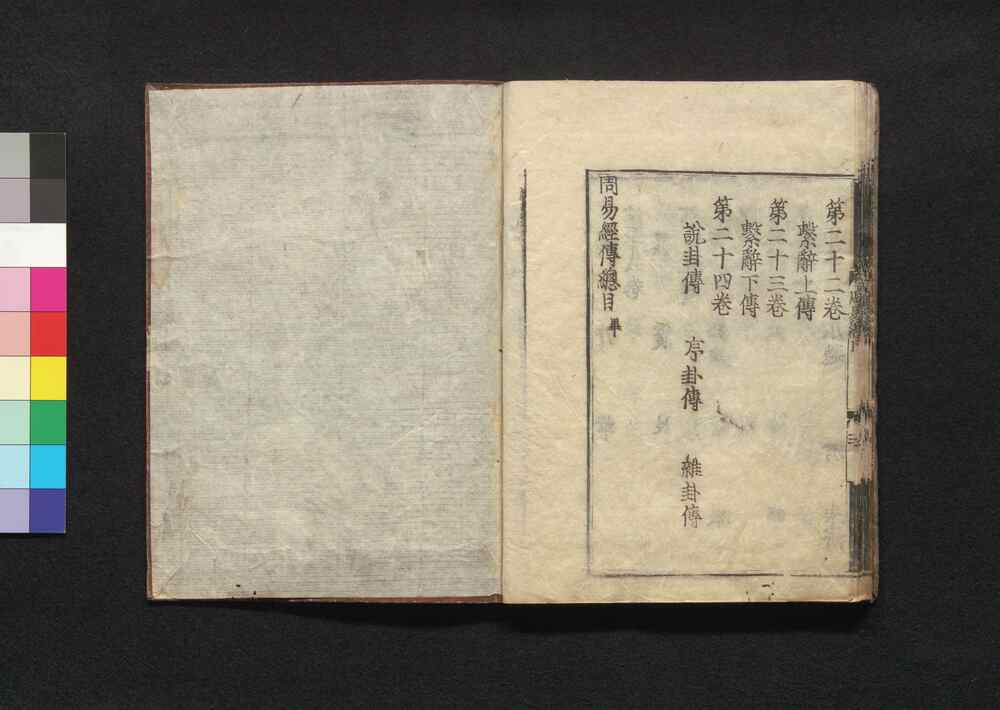 第二十二卷
繫辭上傳
第二十三卷
繫辭下傳
第二十四卷
說卦傳 序卦傳 雜卦傳
周易經傳總目 畢